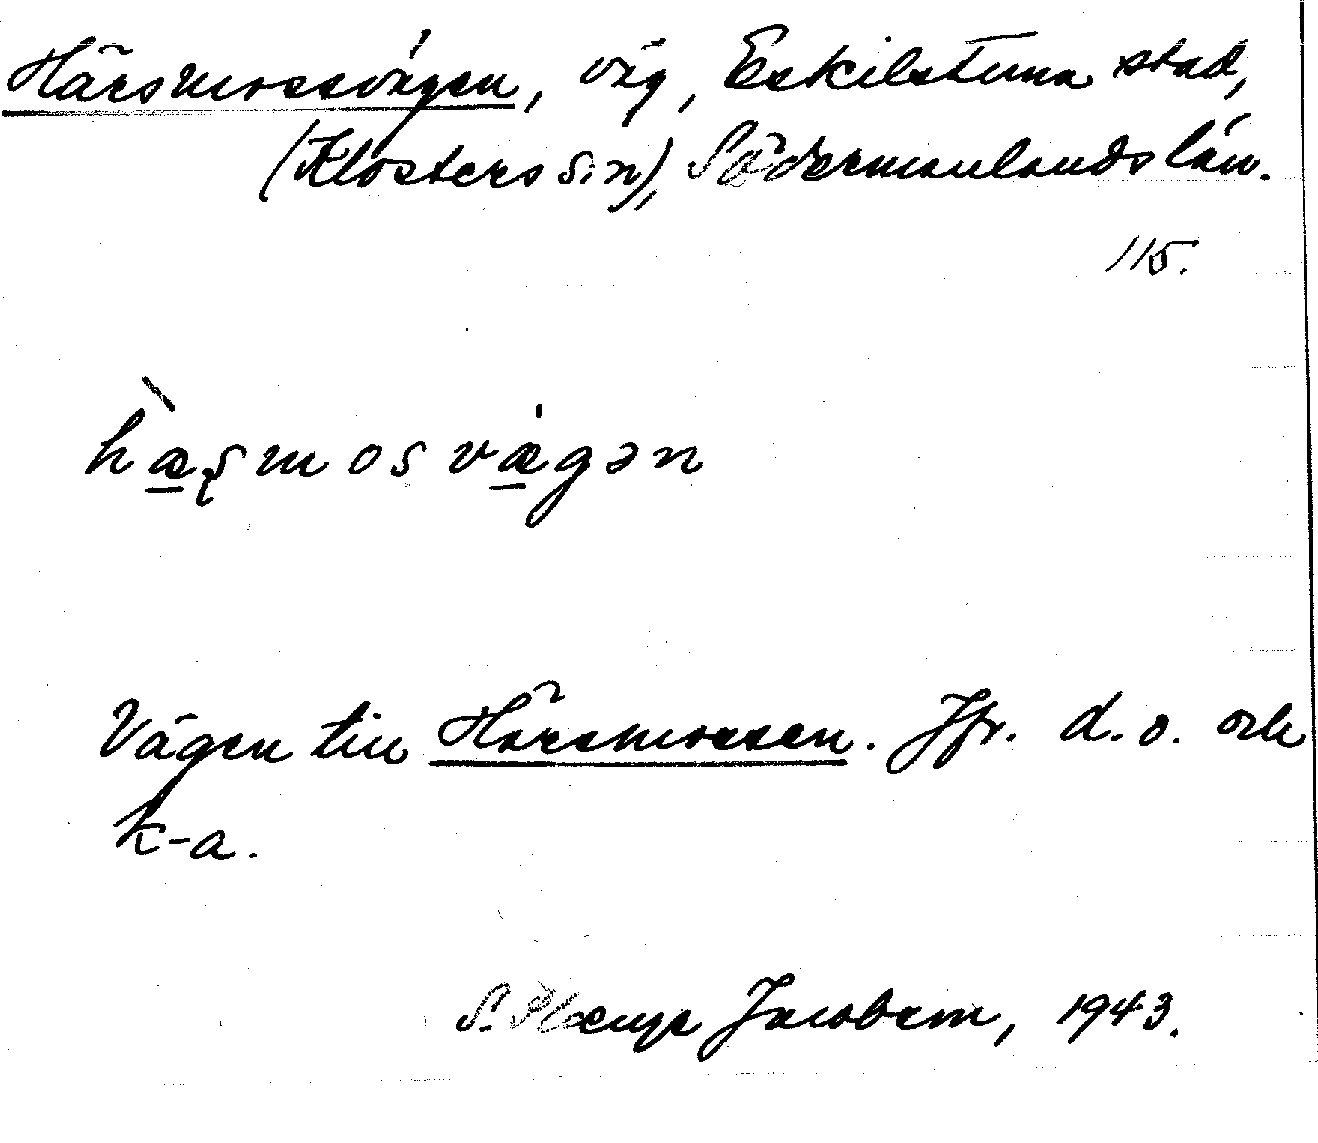 Härsmossvägen, väg, Eskilstuna stad,
(Klosters sn), Södermanlands län.
115.
hæʂmosvægən
Vägen till Härsmossen. Jfr. d.o. och
k-a.
S. Jacobson, 1943.